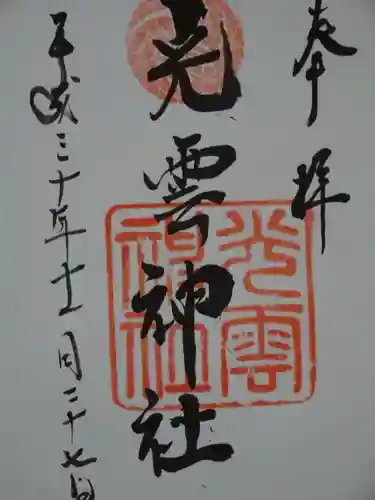 奉拝
光雲神社
光雲
神社
平成三十年十一月二十七日